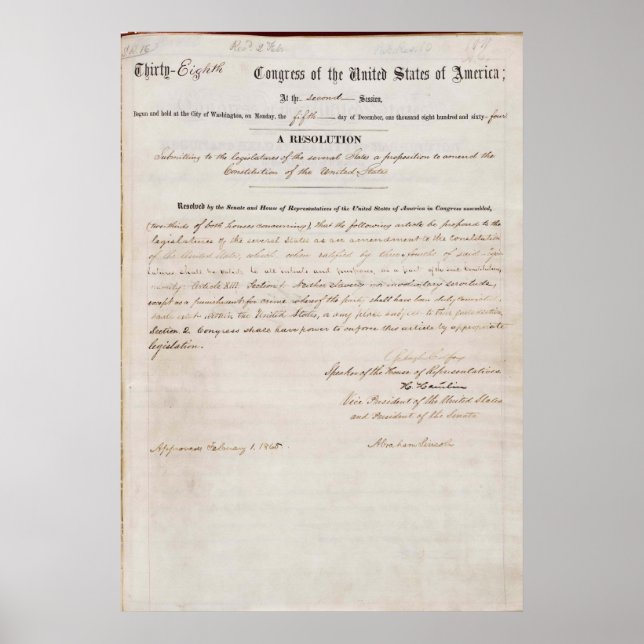 Thirty-Eighth Congress of the United States of America;
At the second Session,
Begun and held at the City of Washington, on Monday, the fifth day of December, one thousand eight hundred and sixty-four
A RESOLUTION
Submitting to the legislatures of the several States a proposition to amend the
Constitution of the United States
Resolved by the Senate and House of Representatives of the United States of America in Congress assembled,
(two-thirds of both houses concurring), that the following article be proposed to the
legislatures of the several States as an amendment to the constitution
of the United States, which, when ratified by three-fourths of said Legis-
latures shall be valid, to all intents and purposes, as a part of the said constitution,
namely: Article XIII. Section 1. Neither slavery nor involuntary servitude,
except as a punishment for crime whereof the party shall have been duly convict-
shall exist within the United States, or any place subject to their jurisdiction.
Section 2. Congress shall have power to enforce this article by appropriate
legislation.
Schuyler Colfax
Speaker of the House of Representatives
H. Hamlin
Vice President of the United States
and President of the Senate
Approved February 1, 1865. Abraham Lincoln